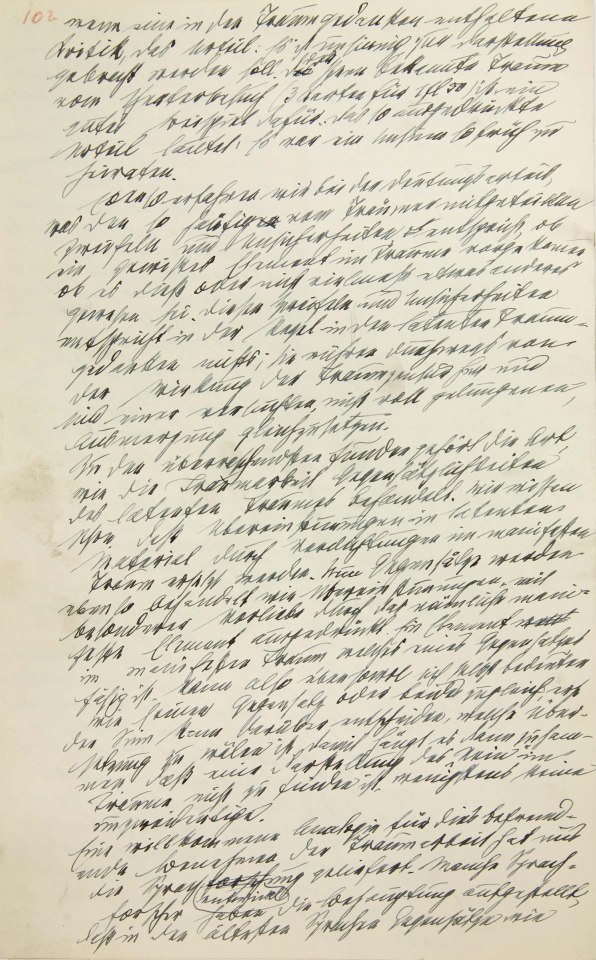 102
wenn eine in den Traumgedanken enthaltene
Kritik, das Urteil: Es ist unsinnig zur Darstellung
gebracht werden soll. Der Ihnen bekannte Traum
vom Theaterbesuch 3 Karten für 1 fl 50 ist ein
gutes Beispiel dafür. Das so ausgedrückte
Urteil lautet: Es war ein Unsinn so früh zu
heiraten.
Ebenso erfahren wir bei der Deutungsarbeit,
was den so häufigen vom Träumer mitgeteilten
Zweifeln und Unsicherheiten entspricht, ob
ein gewisses Element im Traume vorgekommen
ob es dies oder nicht vielmehr etwas anderes
gewesen sei. Diesen Zweifeln und Unsicherheiten
entspricht in der Regel in den latenten Traum-
gedanken nichts; sie rühren durchwegs von
der Wirkung der Traumzensur her und
sind einer versuchten, nicht voll gelungenen,
Ausmerzung gleichzusetzen.
Zu den überraschendsten Funden gehört die Art,
wie die Traumarbeit Gegensätzlichkeiten
des latenten Traumes behandelt. Wir wissen
schon, dass Übereinstimmungen im latenten
Material durch Verdichtungen im manifesten
Traum ersetzt werden. Nun Gegensätze werden
ebenso behandelt wie Übereinstimmungen, mit
besonderer Vorliebe durch das nämliche mani-
feste Element ausgedrückt. Ein Element
im manifesten Traum welches eines Gegensatzes
fähig ist, kann also ebensowol sich selbst bedeuten
wie seinen Gegensatz oder beides zugleich; erst
der Sinn kann darüber entscheiden, welche Über-
setzung zu wälen ist. Damit hängt es dann zusam-
men, dass eine Darstellung des Nein im
Traume nicht zu finden ist, wenigstens keine
unzweideutige.
Eine willkommene Analogie für dies befremd-
ende Benehmen der Traumarbeit hat uns
die Sprachentwicklung geliefert. Manche Sprach-
forscher haben die Behauptung aufgestellt,
dass in den ältesten Sprachen Gegensätze wie